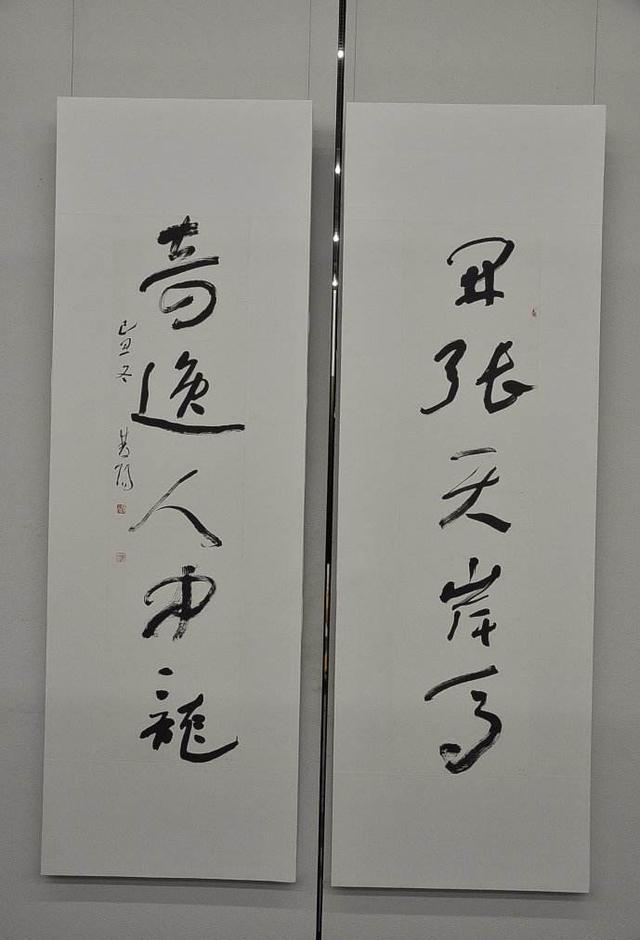 開張天岸馬
奇逸人中龍
己丑冬